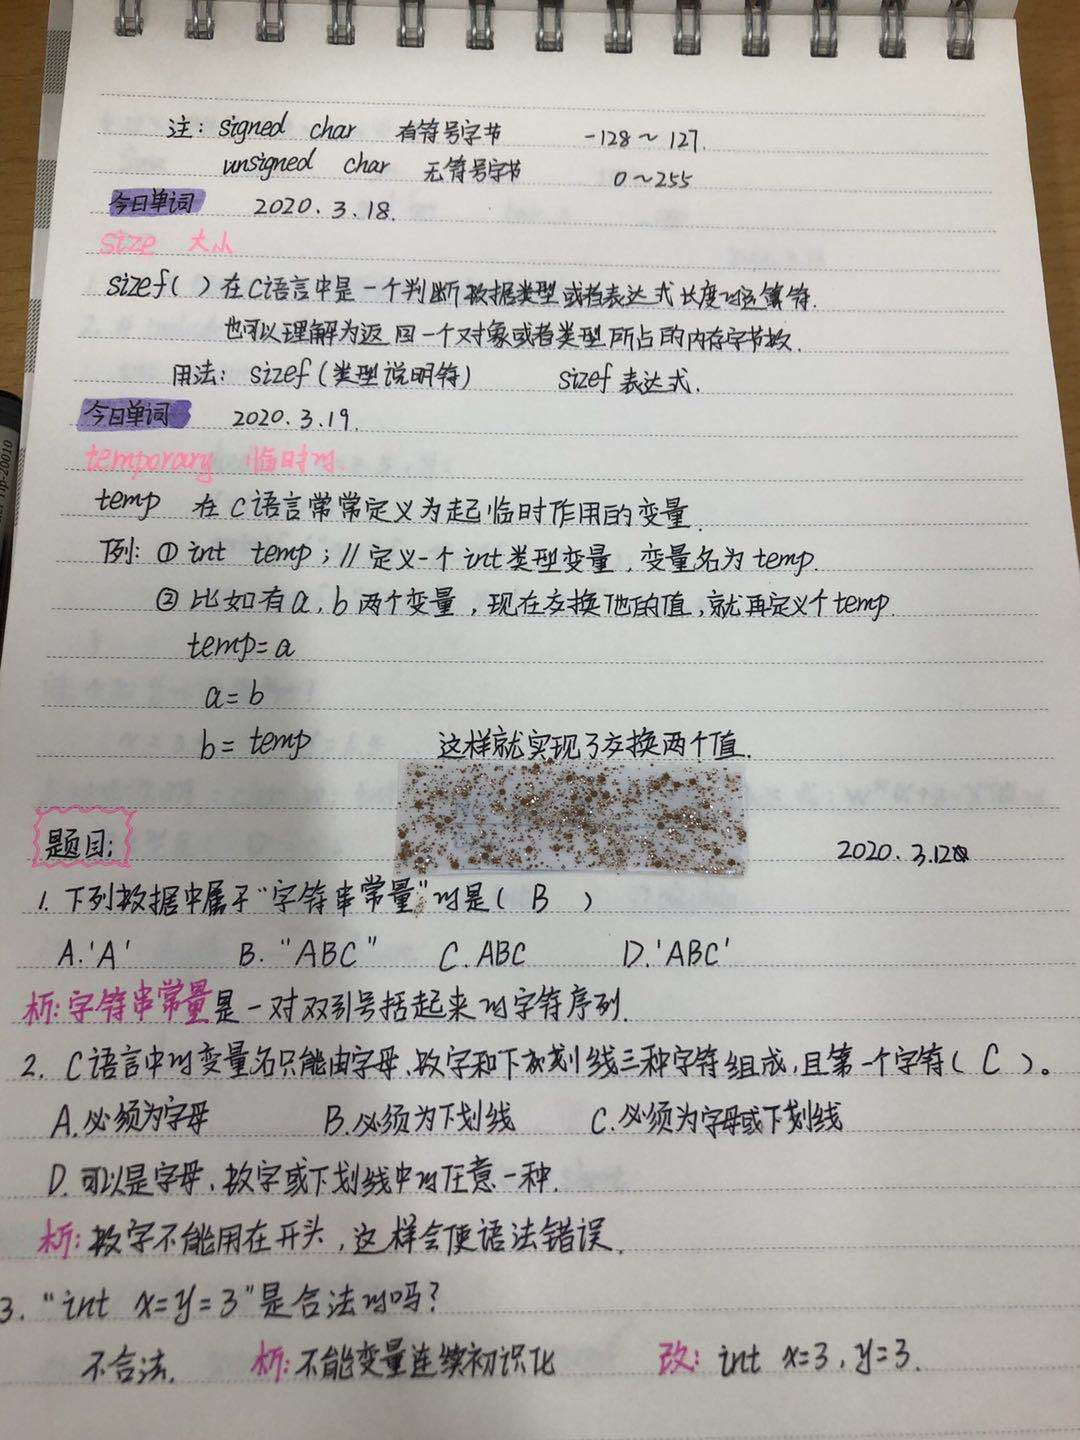 注: signed char 有符号字节 -128～127.
unsigned char 无符号字节 0～255
今日单词 2020.3.18.
size 大小
sizef( ) 在C语言中是一个判断数据类型或者表达式长度的运算符.
也可以理解为返回一个对象或者类型所占的内存字节数.
用法: sizef(类型说明符) sizef 表达式.
今日单词 2020.3.19.
temporary 临时的.
temp 在C语言常常定义为起临时作用的变量.
例: ① int temp; // 定义一个int类型变量,变量名为temp.
② 比如有a,b两个变量,现在交换他的值,就再定义个temp.
temp=a
a=b
b=temp 这样就实现了交换两个值.
题目: 2020.3.12
1. 下列数据中属于"字符串常量"的是( B )
A.'A' B. "ABC" C.ABC D.'ABC'
析:字符串常量是一对双引号括起来的字符序列.
2. C语言中的变量名只能由字母、数字和下划线三种字符组成,且第一个字符( C )。
A.必须为字母 B.必须为下划线 C.必须为字母或下划线
D.可以是字母、数字或下划线中的任意一种.
析:数字不能用在开头,这样会使语法错误.
3. "int x=y=3"是合法的吗?
不合法. 析:不能变量连续初识化 改: int x=3,y=3.